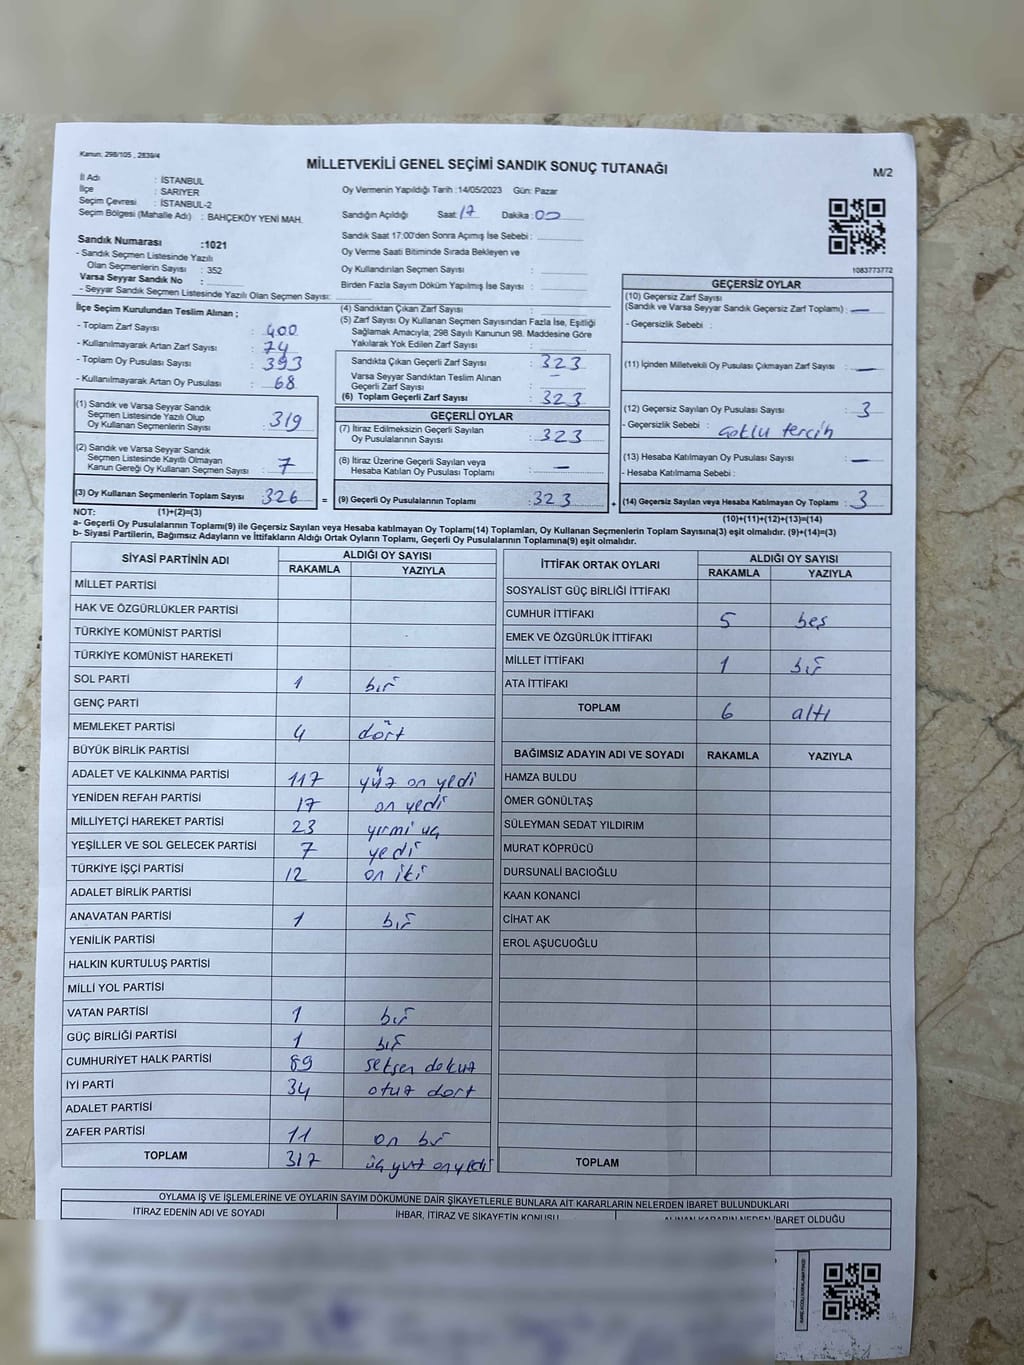 Kanun, 298/105 , 2839/4
MİLLETVEKİLİ GENEL SEÇİMİ SANDIK SONUÇ TUTANAĞI
M/2
İl Adı : İSTANBUL
İlçe : SARIYER
Seçim Çevresi : İSTANBUL-2
Seçim Bölgesi (Mahalle Adı) : BAHÇEKÖY YENİ MAH.
Sandık Numarası :1021
- Sandık Seçmen Listesinde Yazılı
Olan Seçmenlerin Sayısı : 352
Varsa Seyyar Sandık No :
- Seyyar Sandık Seçmen Listesinde Yazılı Olan Seçmen Sayısı:
Oy Vermenin Yapıldığı Tarih :14/05/2023 Gün: Pazar
Sandığın Açıldığı Saat: 17 Dakika : 00
Sandık Saat 17:00'den Sonra Açımış İse Sebebi :
Oy Verme Saati Bitiminde Sırada Bekleyen ve
Oy Kullandırılan Seçmen Sayısı :
Birden Fazla Sayım Döküm Yapılmış İse Sayısı :
1083773772
İlçe Seçim Kurulundan Teslim Alınan ;
- Toplam Zarf Sayısı : 400
- Kullanılmayarak Artan Zarf Sayısı : 74
- Toplam Oy Pusulası Sayısı : 393
- Kullanılmayarak Artan Oy Pusulası : 68
(1) Sandık ve Varsa Seyyar Sandık
Seçmen Listesinde Yazılı Olup
Oy Kullanan Seçmenlerin Sayısı : 319
(2) Sandık ve Varsa Seyyar Sandık
Seçmen Listesinde Kayıtlı Olmayan
Kanun Gereği Oy Kullanan Seçmen Sayısı : 7
(3) Oy Kullanan Seçmenlerin Toplam Sayısı : 326 =
(4) Sandıktan Çıkan Zarf Sayısı :
(5) Zarf Sayısı Oy Kullanan Seçmen Sayısından Fazla İse, Eşitliği
Sağlamak Amacıyla, 298 Sayılı Kanunun 98. Maddesine Göre
Yakılarak Yok Edilen Zarf Sayısı :
Sandıkta Çıkan Geçerli Zarf Sayısı : 323
Varsa Seyyar Sandıktan Teslim Alınan
Geçerli Zarf Sayısı : –
(6) Toplam Geçerli Zarf Sayısı : 323
GEÇERLİ OYLAR
(7) İtiraz Edilmeksizin Geçerli Sayılan
Oy Pusulalarının Sayısı : 323
(8) İtiraz Üzerine Geçerli Sayılan veya
Hesaba Katılan Oy Pusulası Toplamı : –
(9) Geçerli Oy Pusulalarının Toplamı : 323 +
GEÇERSİZ OYLAR
(10) Geçersiz Zarf Sayısı
(Sandık ve Varsa Seyyar Sandık Geçersiz Zarf Toplamı) : –
- Geçersizlik Sebebi :
(11) İçinden Milletvekili Oy Pusulası Çıkmayan Zarf Sayısı : –
(12) Geçersiz Sayılan Oy Pusulası Sayısı : 3
- Geçersizlik Sebebi : çoklu tercih
(13) Hesaba Katılmayan Oy Pusulası Sayısı : –
- Hesaba Katılmama Sebebi :
(14) Geçersiz Sayılan veya Hesaba Katılmayan Oy Pusulası Toplamı : 3
NOT: (1)+(2)=(3)
(10)+(11)+(12)+(13)=(14)
a- Geçerli Oy Pusulalarının Toplamı(9) ile Geçersiz Sayılan veya Hesaba katılmayan Oy Toplamı(14) Toplamları, Oy Kullanan Seçmenlerin Toplam Sayısına(3) eşit olmalıdır. (9)+(14)=(3)
b- Siyasi Partilerin, Bağımsız Adayların ve İttifakların Aldığı Ortak Oyların Toplamı, Geçerli Oy Pusulalarının Toplamına(9) eşit olmalıdır.
SİYASİ PARTİNİN ADI ALDIĞI OY SAYISI
RAKAMLA YAZIYLA
MİLLET PARTİSİ
HAK VE ÖZGÜRLÜKLER PARTİSİ
TÜRKİYE KOMÜNİST PARTİSİ
TÜRKİYE KOMÜNİST HAREKETİ
SOL PARTİ 1 bir
GENÇ PARTİ
MEMLEKET PARTİSİ 4 dört
BÜYÜK BİRLİK PARTİSİ
ADALET VE KALKINMA PARTİSİ 117 yüz on yedi
YENİDEN REFAH PARTİSİ 17 on yedi
MİLLİYETÇİ HAREKET PARTİSİ 23 yirmi üç
YEŞİLLER VE SOL GELECEK PARTİSİ 7 yedi
TÜRKİYE İŞÇİ PARTİSİ 12 on iki
ADALET BİRLİK PARTİSİ
ANAVATAN PARTİSİ 1 bir
YENİLİK PARTİSİ
HALKIN KURTULUŞ PARTİSİ
MİLLİ YOL PARTİSİ
VATAN PARTİSİ 1 bir
GÜÇ BİRLİĞİ PARTİSİ 1 bir
CUMHURİYET HALK PARTİSİ 89 seksen dokuz
İYİ PARTİ 34 otuz dört
ADALET PARTİSİ
ZAFER PARTİSİ 11 on bir
TOPLAM 317 üç yüz on yedi
İTTİFAK ORTAK OYLARI ALDIĞI OY SAYISI
RAKAMLA YAZIYLA
SOSYALİST GÜÇ BİRLİĞİ İTTİFAKI
CUMHUR İTTİFAKI 5 beş
EMEK VE ÖZGÜRLÜK İTTİFAKI
MİLLET İTTİFAKI 1 bir
ATA İTTİFAKI
TOPLAM 6 altı
BAĞIMSIZ ADAYIN ADI VE SOYADI RAKAMLA YAZIYLA
HAMZA BULDU
ÖMER GÖNÜLTAŞ
SÜLEYMAN SEDAT YILDIRIM
MURAT KÖPRÜCÜ
DURSUNALİ BACIOĞLU
KAAN KONANCİ
CİHAT AK
EROL AŞUCUOĞLU
TOPLAM
OYLAMA İŞ VE İŞLEMLERİNE VE OYLARIN SAYIM DÖKÜMÜNE DAİR ŞİKAYETLERLE BUNLARA AİT KARARLARIN NELERDEN İBARET BULUNDUKLARI
İTİRAZ EDENİN ADI VE SOYADI İHBAR, İTİRAZ VE ŞİKAYETİN KONUSU ALINAN KARARIN NEDEN İBARET OLDUĞU